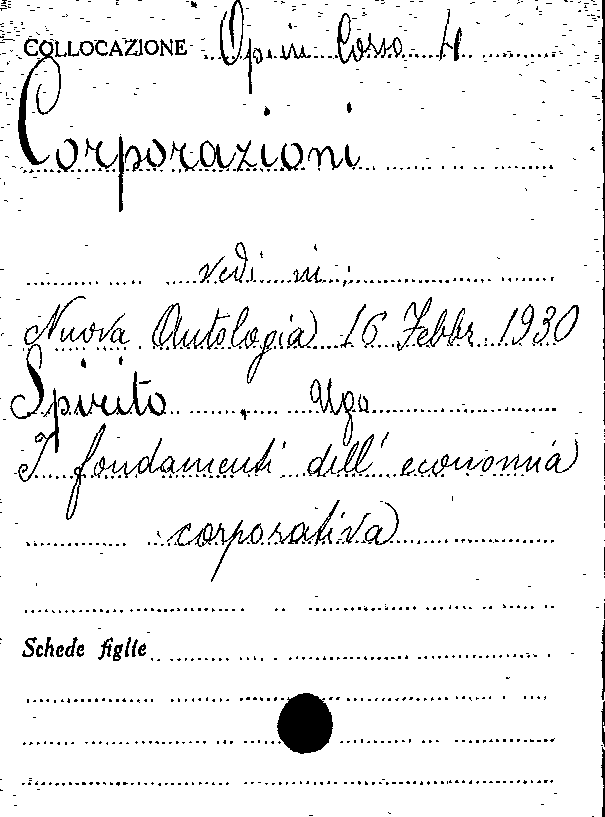 COLLOCAZIONE Op. in Corso H
Corporazioni
vedi in:
Nuova Antologia 16 Febbr. 1930
Spirito, Ugo
I fondamenti dell'economia
corporativa
Schede figlie